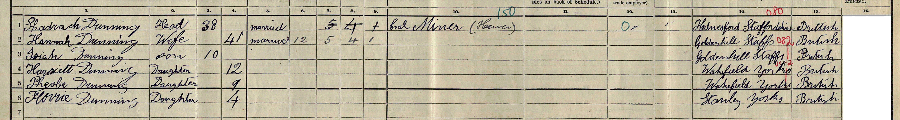 1 Shadrach Dunning Head 38 married 5 4 1 Coal Miner (Hewer) 150 0 Hednesford Staffordshire British
2 Hannah Dunning Wife 41 married 12 5 4 1 Goldenhill Staffs 082 British
3 Josiah Dunning son 10 Goldenhill Staffs British
4 Daughter 12 Wakefield Yorks British
5 Pheobe Dunning Daughter 9 Wakefield Yorks British
6 Florrie Dunning Daughter 4 Stanley Yorks British
7